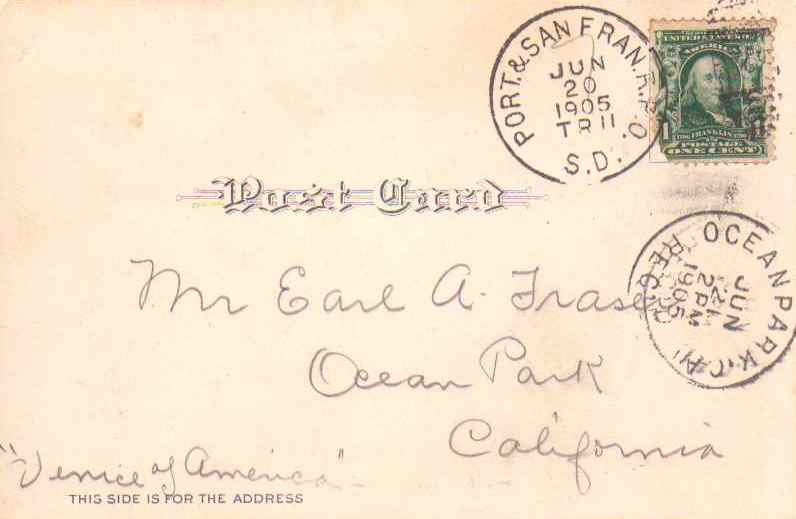 PORT. & SAN FRAN. R.P.O.
JUN
20
1905
TR 11
S.D.
UNITED STATES OF
AMERICA
1 FRANKLIN
POSTAGE
ONE CENT
Post Card
OCEAN PARK, CAL.
JUN
21
2 PM
1905
REC'D
Mr Earl A. Fraser
Ocean Park
California
"Venice of America" -
THIS SIDE IS FOR THE ADDRESS